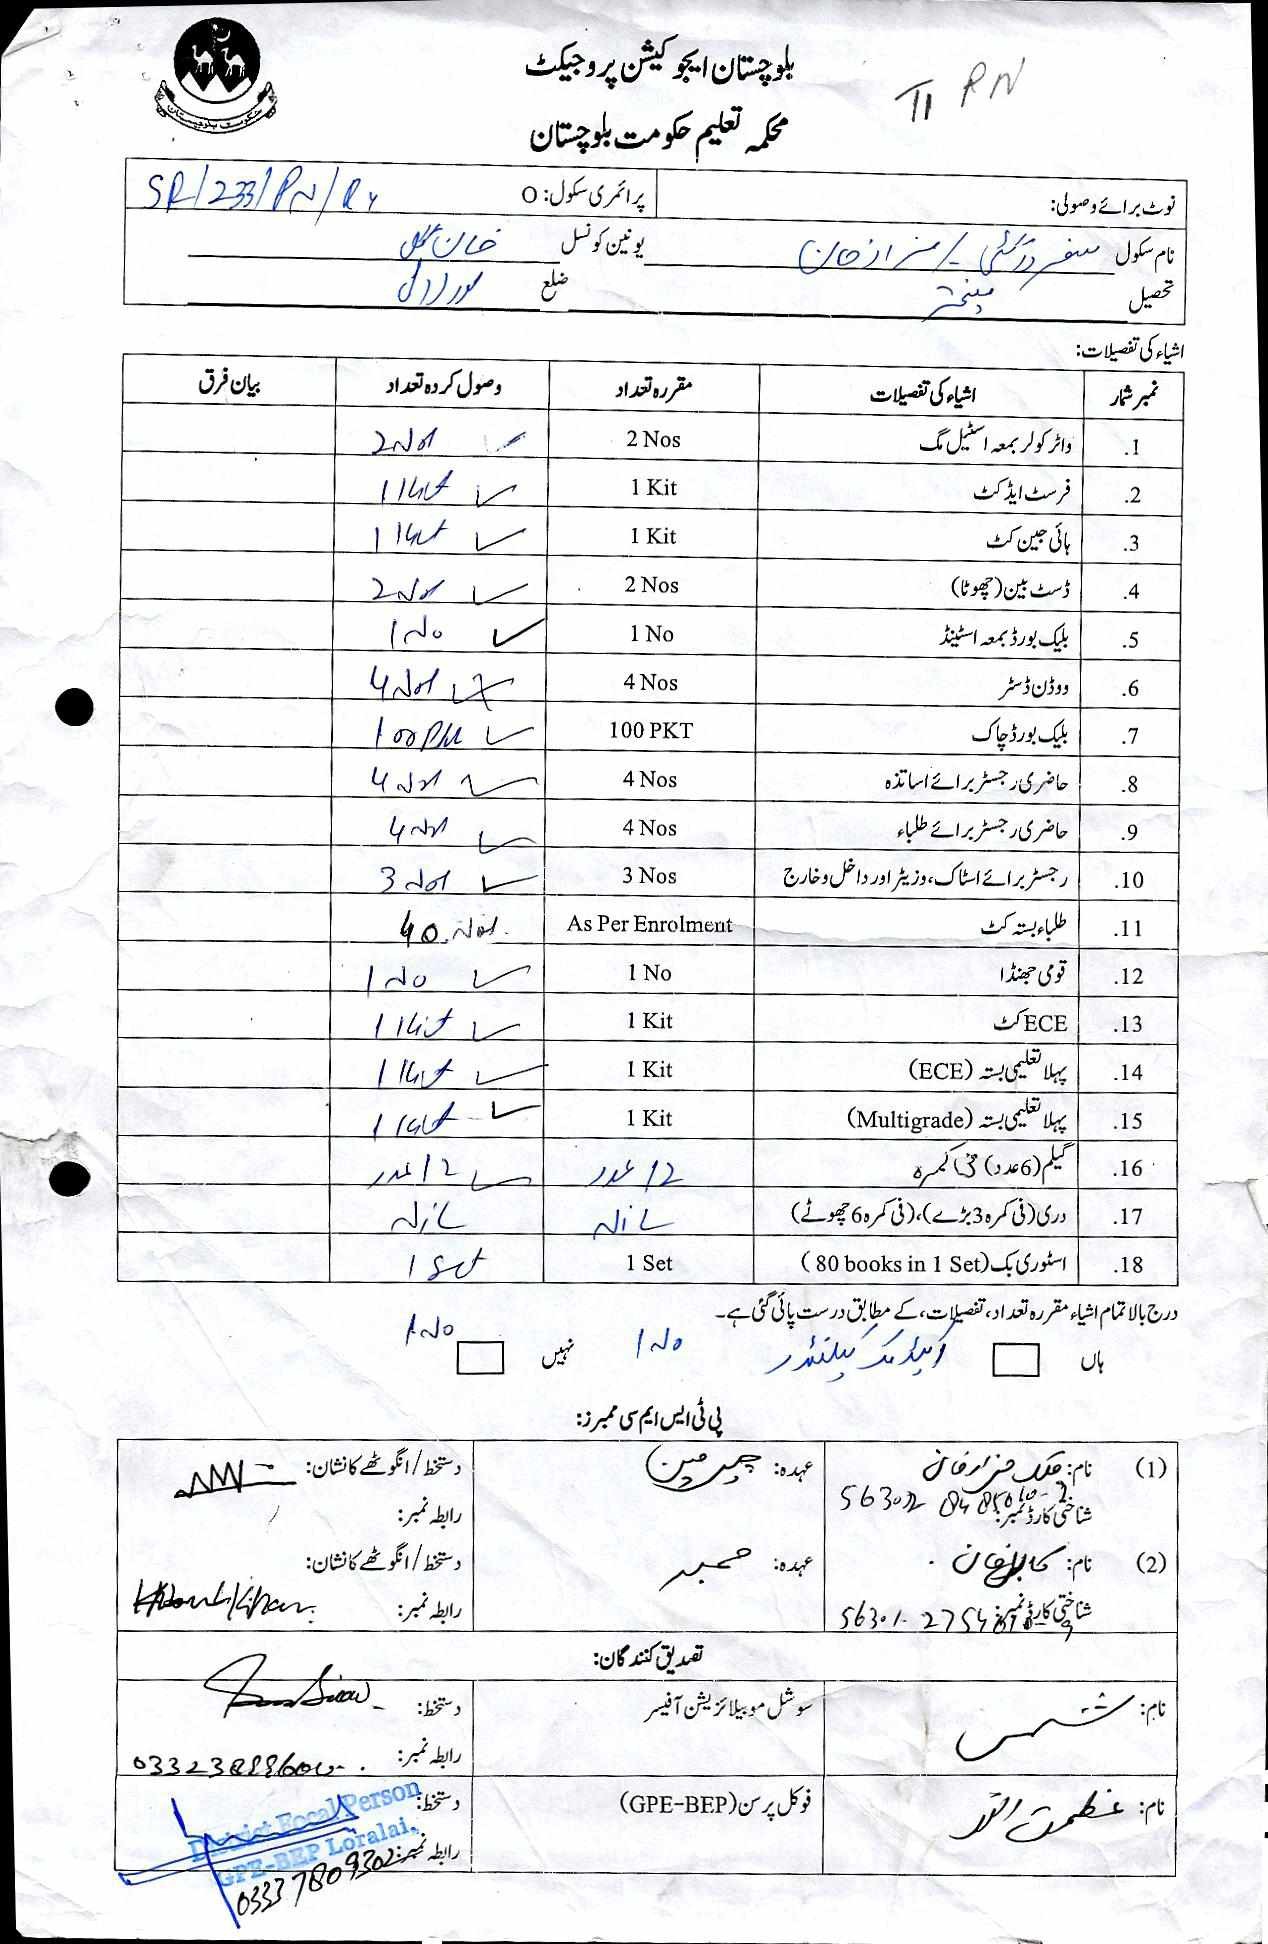 حکومت بلوچستان
بلوچستان ایجوکیشن پروجیکٹ
محکمہ تعلیم حکومت بلوچستان
نوٹ برائے وصولی: پرائمری سکول: O SR/233/PN/
نام سکول یونین کونسل خان
تحصیل ضلع لورالائی
اشیاء کی تفصیلات:
نمبر شمار اشیاء کی تفصیلات مقررہ تعداد وصول کردہ تعداد بیان فرق
1. واٹر کولر بمعہ اسٹیل مگ 2 Nos 2 Nos
2. فرسٹ ایڈ کٹ 1 Kit 1 Kit
3. ہائی جین کٹ 1 Kit 1 Kit
4. ڈسٹ بین (چھوٹا) 2 Nos 2 Nos
5. بلیک بورڈ بمعہ اسٹینڈ 1 No 1 No
6. ووڈن ڈسٹر 4 Nos 4 Nos
7. بلیک بورڈ چاک 100 PKT 100 PKT
8. حاضری رجسٹر برائے اساتذہ 4 Nos 4 Nos
9. حاضری رجسٹر برائے طلباء 4 Nos 4 Nos
10. رجسٹر برائے اسٹاک، وزیٹر اور داخل و خارج 3 Nos 3 Nos
11. طلباء بستہ کٹ As Per Enrolment 40 Nos.
12. قومی جھنڈا 1 No 1 No
13. ECE کٹ 1 Kit 1 Kit
14. پہلا تعلیمی بستہ (ECE) 1 Kit 1 Kit
15. پہلا تعلیمی بستہ (Multigrade) 1 Kit 1 Kit
16. گیلم (6 عدد) فی کمرہ 12 عدد 12 عدد
17. دری (فی کمرہ 3 بڑے)، (فی کمرہ 6 چھوٹے)
18. اسٹوری بک (80 books in 1 Set) 1 Set 1 Set
درج بالا تمام اشیاء مقررہ تعداد، تفصیلات، کے مطابق درست پائی گئی ہے۔
ہاں کیلنڈر 1 No نہیں 1 No
پی ٹی ایس ایم سی ممبرز:
(1) نام: ملک خان عہدہ: چیرمین دستخط/انگوٹھے کا نشان:
شناختی کارڈ نمبر: رابطہ نمبر:
(2) نام: خان عہدہ: ممبر دستخط/انگوٹھے کا نشان:
شناختی کارڈ نمبر: رابطہ نمبر:
تصدیق کنندگان:
نام: شمس سوشل موبیلائزیشن آفیسر دستخط:
رابطہ نمبر:
نام: عظمت اللہ فوکل پرسن (GPE-BEP) دستخط:
District Focal Person
GPE-BEP Loralai.
رابطہ نمبر: 03337809302